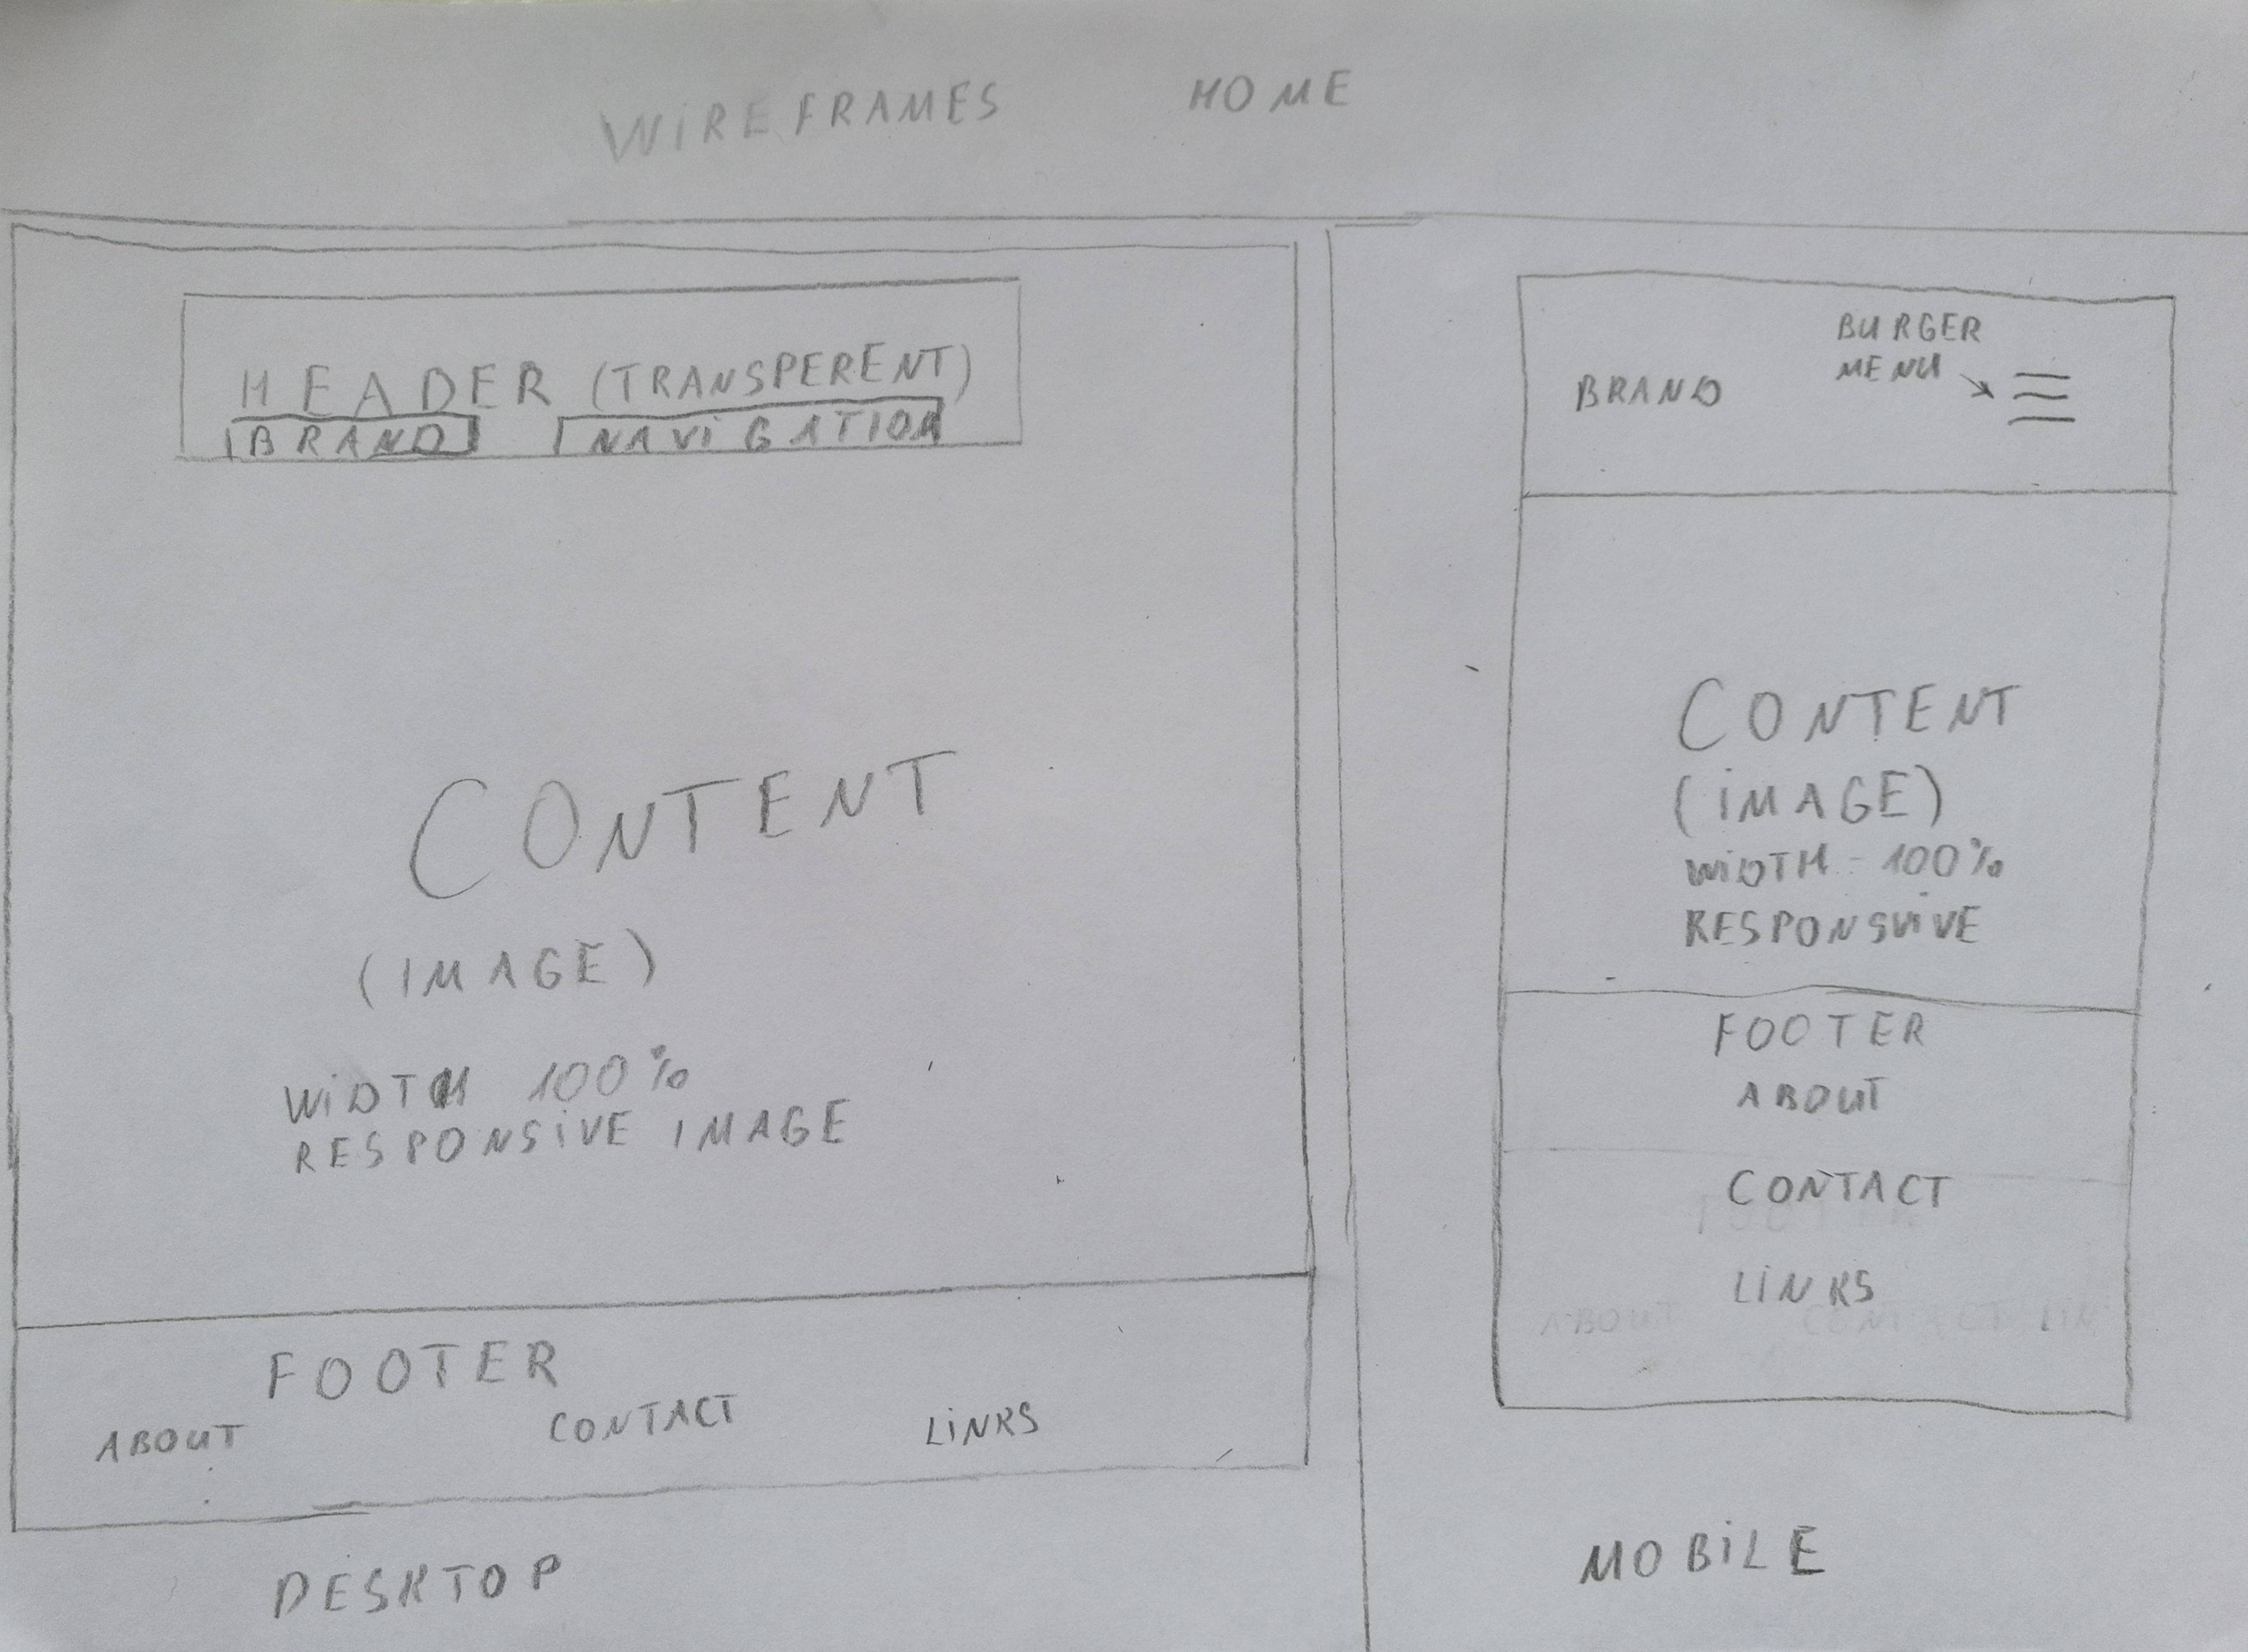 WIREFRAMES HOME
HEADER (TRANSPERENT)
BRAND NAVIGATION
CONTENT
(IMAGE)
WIDTH 100%
RESPONSIVE IMAGE
FOOTER
ABOUT CONTACT LINKS
DESKTOP
BURGER
MENU
BRAND
CONTENT
(IMAGE)
WIDTH - 100%
RESPONSVIVE
FOOTER
ABOUT
CONTACT
FOOTER
LINKS
ABOUT CONTACT LIN
MOBILE